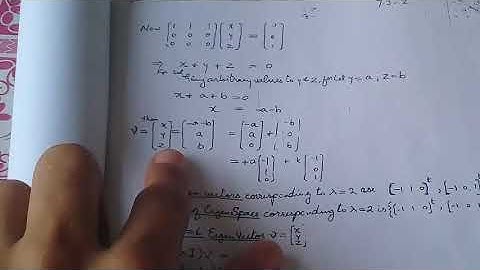 Now [1 1 1; 0 0 0; 0 0 0] [x; y; z] = [ 0; 1]
⇒ x + y + z = 0
any arbitrary values to y & z, for let y = a, z = b
x + a + b = 0
x = -a-b
Then
v = [x; y; z] = [-a-b; a; b] = [-a; a; 0] + [-b; 0; b]
= +a [-1; 1; 0] + b [-1; 0; 1]
vectors corresponding to λ = 2 are [-1 1 0]ᵗ, [-1 0 1]
of EigenSpace corresponding to λ = 2 is {[-1 1 0]ᵗ, [-1
= 6 EigenVector v = [x; y; z]
I) v =